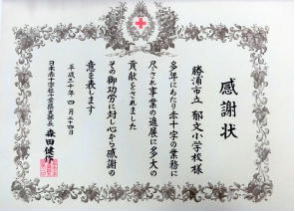 感謝状
勝浦市立 郁文小学校様
多年にわたり赤十字の業務に
尽され事業の進展に多大の
貢献をされました
その御功労に対し心から感謝の
意を表します
平成三十年四月二十四日
日本赤十字社千葉県支部長 森田健作